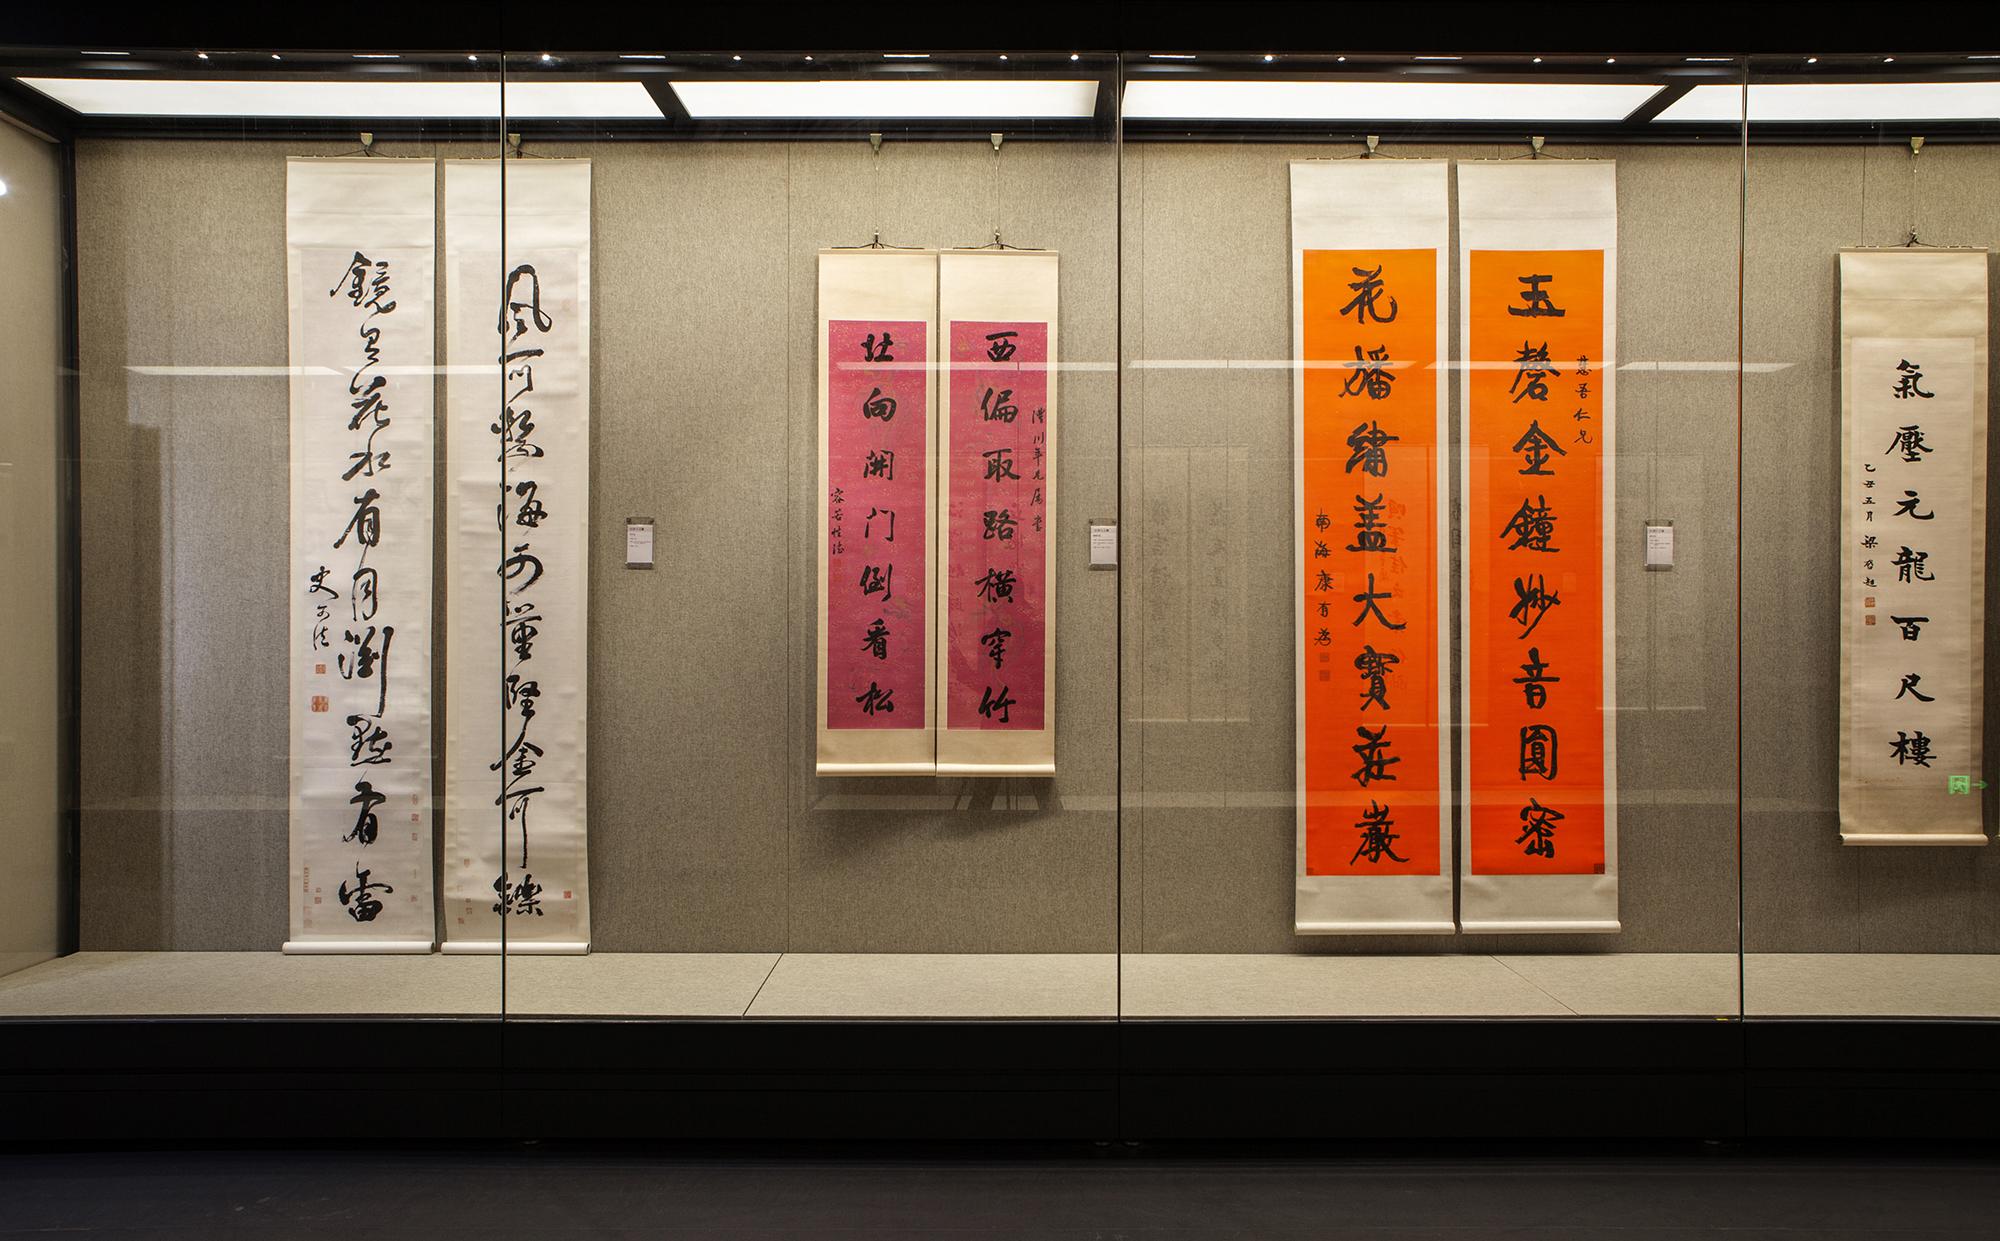 氣壓元龍百尺樓
乙丑五月 梁啟超
吾仁兄
玉磬金鐘妙音圓密
花旛繡盖大寶莊嚴
南海康有為
澧川年兄属書
西偏取路橫穿竹
北向開门倒看松
容若性德
風可繫海可量堅金可鑠
鏡有花水有月淵默有雷
史可法